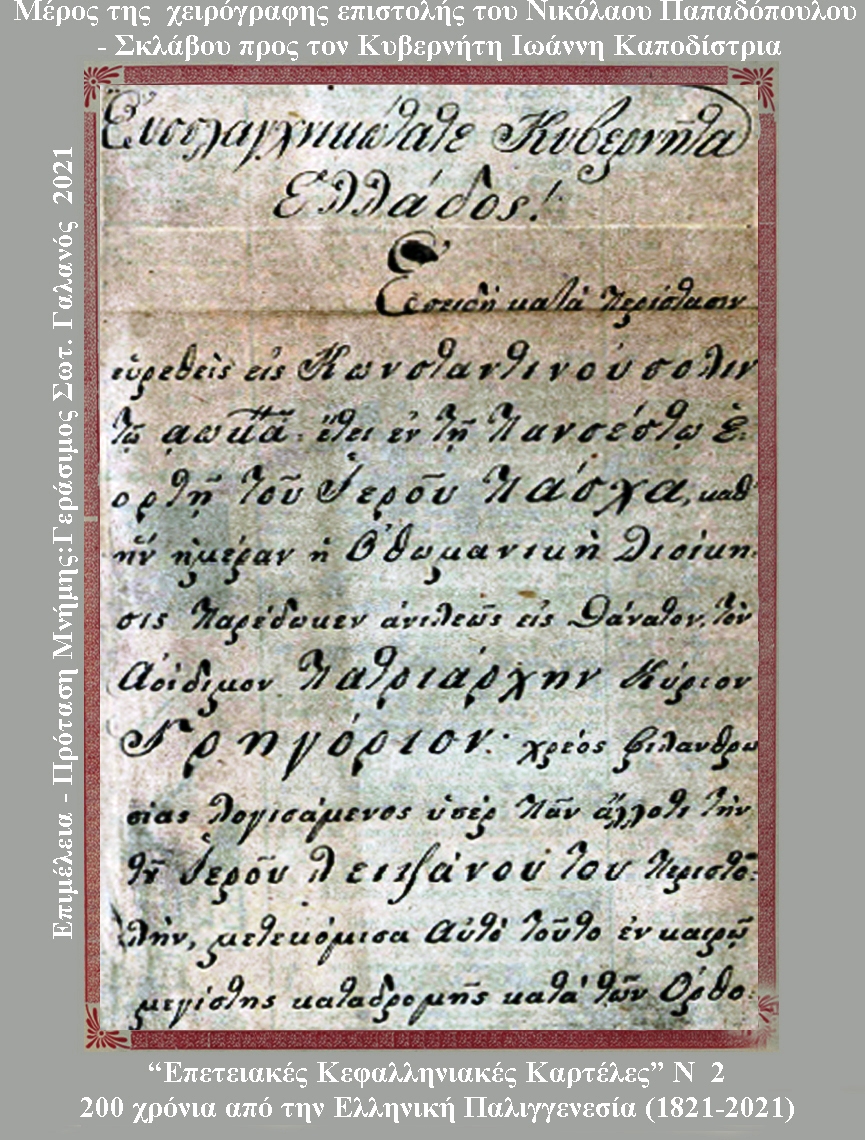 Μέρος της χειρόγραφης επιστολής του Νικόλαου Παπαδόπουλου
- Σκλάβου προς τον Κυβερνήτη Ιωάννη Καποδίστρια
Επιμέλεια - Πρόταση Μνήμης:Γεράσιμος Σωτ. Γαλανός 2021
Εὐσπλαγχνικώτατε Κυβερνῆτα
Ἑλλάδος!
Ἐπειδὴ κατὰ περίστασιν
εὑρεθεὶς εἰς Κωνσταντινούπολιν
τῷ αωκα: ἔτει ἐν τῇ πανσέπτῳ ἑ-
ορτῇ τοῦ Ἱεροῦ Πάσχα, καθ'
ἣν ἡμέραν ἡ Ὀθωμανικὴ Διοίκη-
σις παρέδωκεν ἀνιλεῶς εἰς θάνατον, τὸν
Ἀοίδιμον Πατριάρχην Κύριον
Γρηγόριον: χρέος φιλανθρω
πίας λογισάμενος ὑπὲρ πᾶν ἄλλοτι τὴν
τοῦ Ἱεροῦ λειψάνου του περιστο-
λὴν, μετεκόμισα αὐτὸ τοῦτο ἐν καιρῷ
μεγίστης καταδρομῆς κατὰ τῶν Ὀρθο-
“Επετειακές Κεφαλληνιακές Καρτέλες” Ν 2
200 χρόνια από την Ελληνική Παλιγγενεσία (1821-2021)